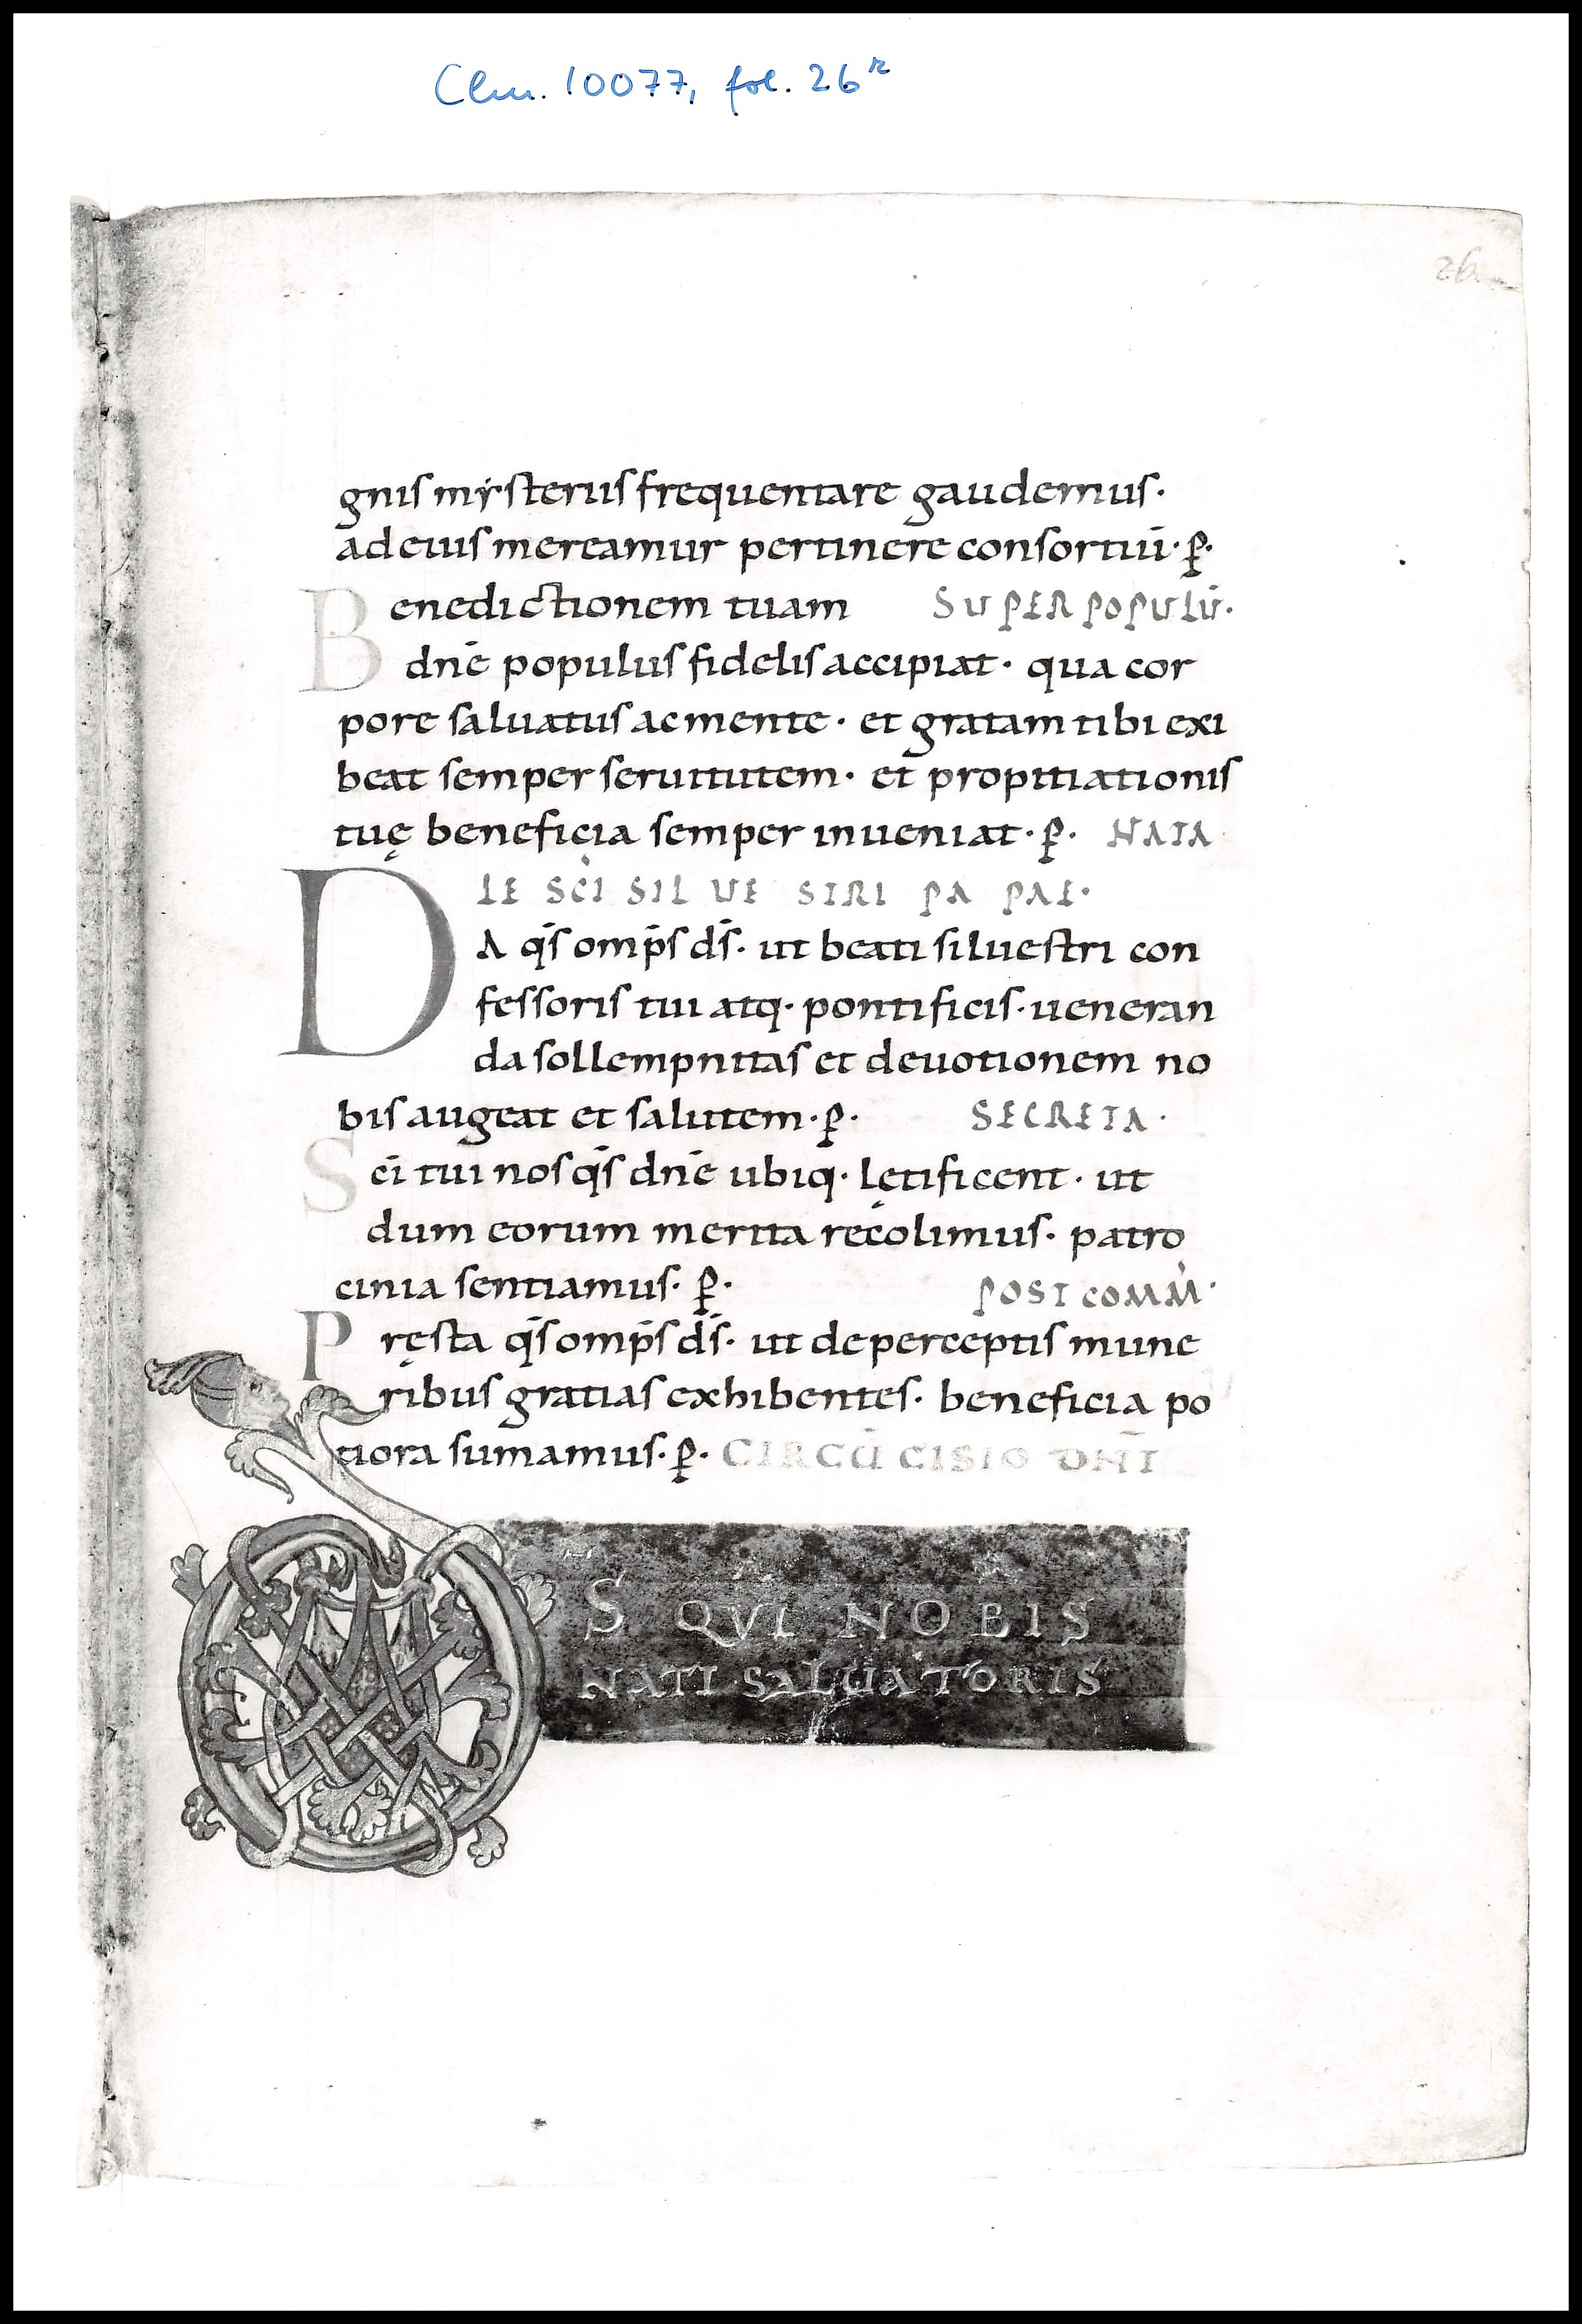 Clm. 10077, fol. 26r
26
gnis mysteriis frequentare gaudemus·
ad eius mereamur pertinere consortiū·p̱·
Benedictionem tuam SUPER POPULŪ·
dnē populus fidelis accipiat· qua cor
pore saluatus ac mente· et gratam tibi exi
beat semper seruitutem· et propitiationis
tuę beneficia semper inueniat·p̱· NATA
LE SCĪ SILUESTRI PAPAE·
DA qs̄ omp̄s ds̄· ut beati siluestri con
fessoris tui atq· pontificis· ueneran
da sollempnitas et deuotionem no
bis augeat et salutem·p̱· SECRETA·
Scī tui nos qs̄ dnē ubiq· lętificent· ut
dum eorum merita recolimus· patro
cinia sentiamus·p̱· POST COMM̄·
Pręsta qs̄ omp̄s ds̄· ut de perceptis mune
ribus gratias exhibentes· beneficia po
tiora sumamus·p̱· CIRCŪCISIO DN̄I
DS QVI NOBIS
NATI SALUATORIS